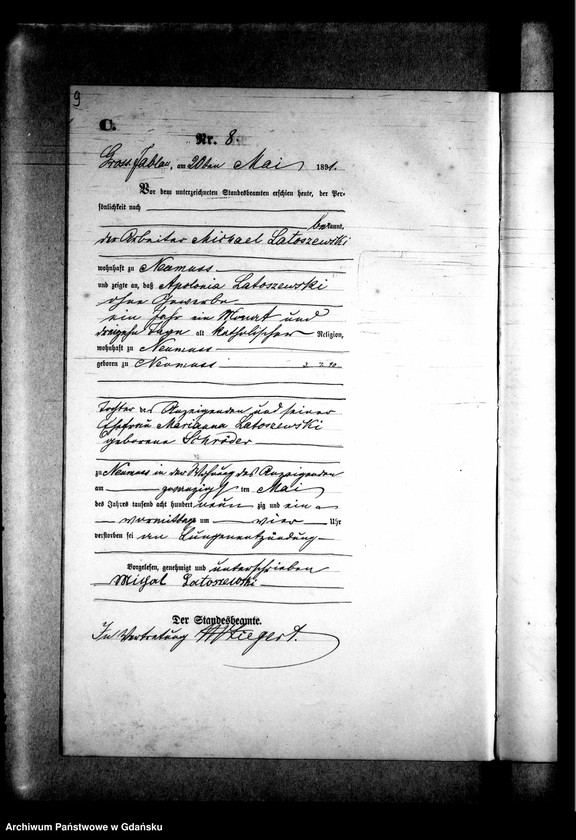 9
C.
Nr. 8.
Gross Jablau, am 20ten Mai 1891.
Vor dem unterzeichneten Standesbeamten erschien heute, der Per-
sönlichkeit nach
bekannt,
der Arbeiter Michael Latoszewski
wohnhaft zu Neumuss
und zeigte an, daß Apolonia Latoszewski
ohne Gewerbe
ein Jahr ein Monat und
dreizehn Tage alt katholischer Religion,
wohnhaft zu Neumuss
geboren zu Neumuss
Tochter des Anzeigenden und seiner
Ehefrau Marianna Latoszewski
geborene Schröder
zu Neumuss in der Wohnung des Anzeigenden
am zwanzigsten Mai
des Jahres tausend acht hundert neun zig und ein
vormittags um vier Uhr
verstorben sei an Lungenentzündung
Vorgelesen, genehmigt und unterschrieben
Michal Latoszewski
Der Standesbeamte.
In Vertretung
Archiwum Państwowe w Gdańsku